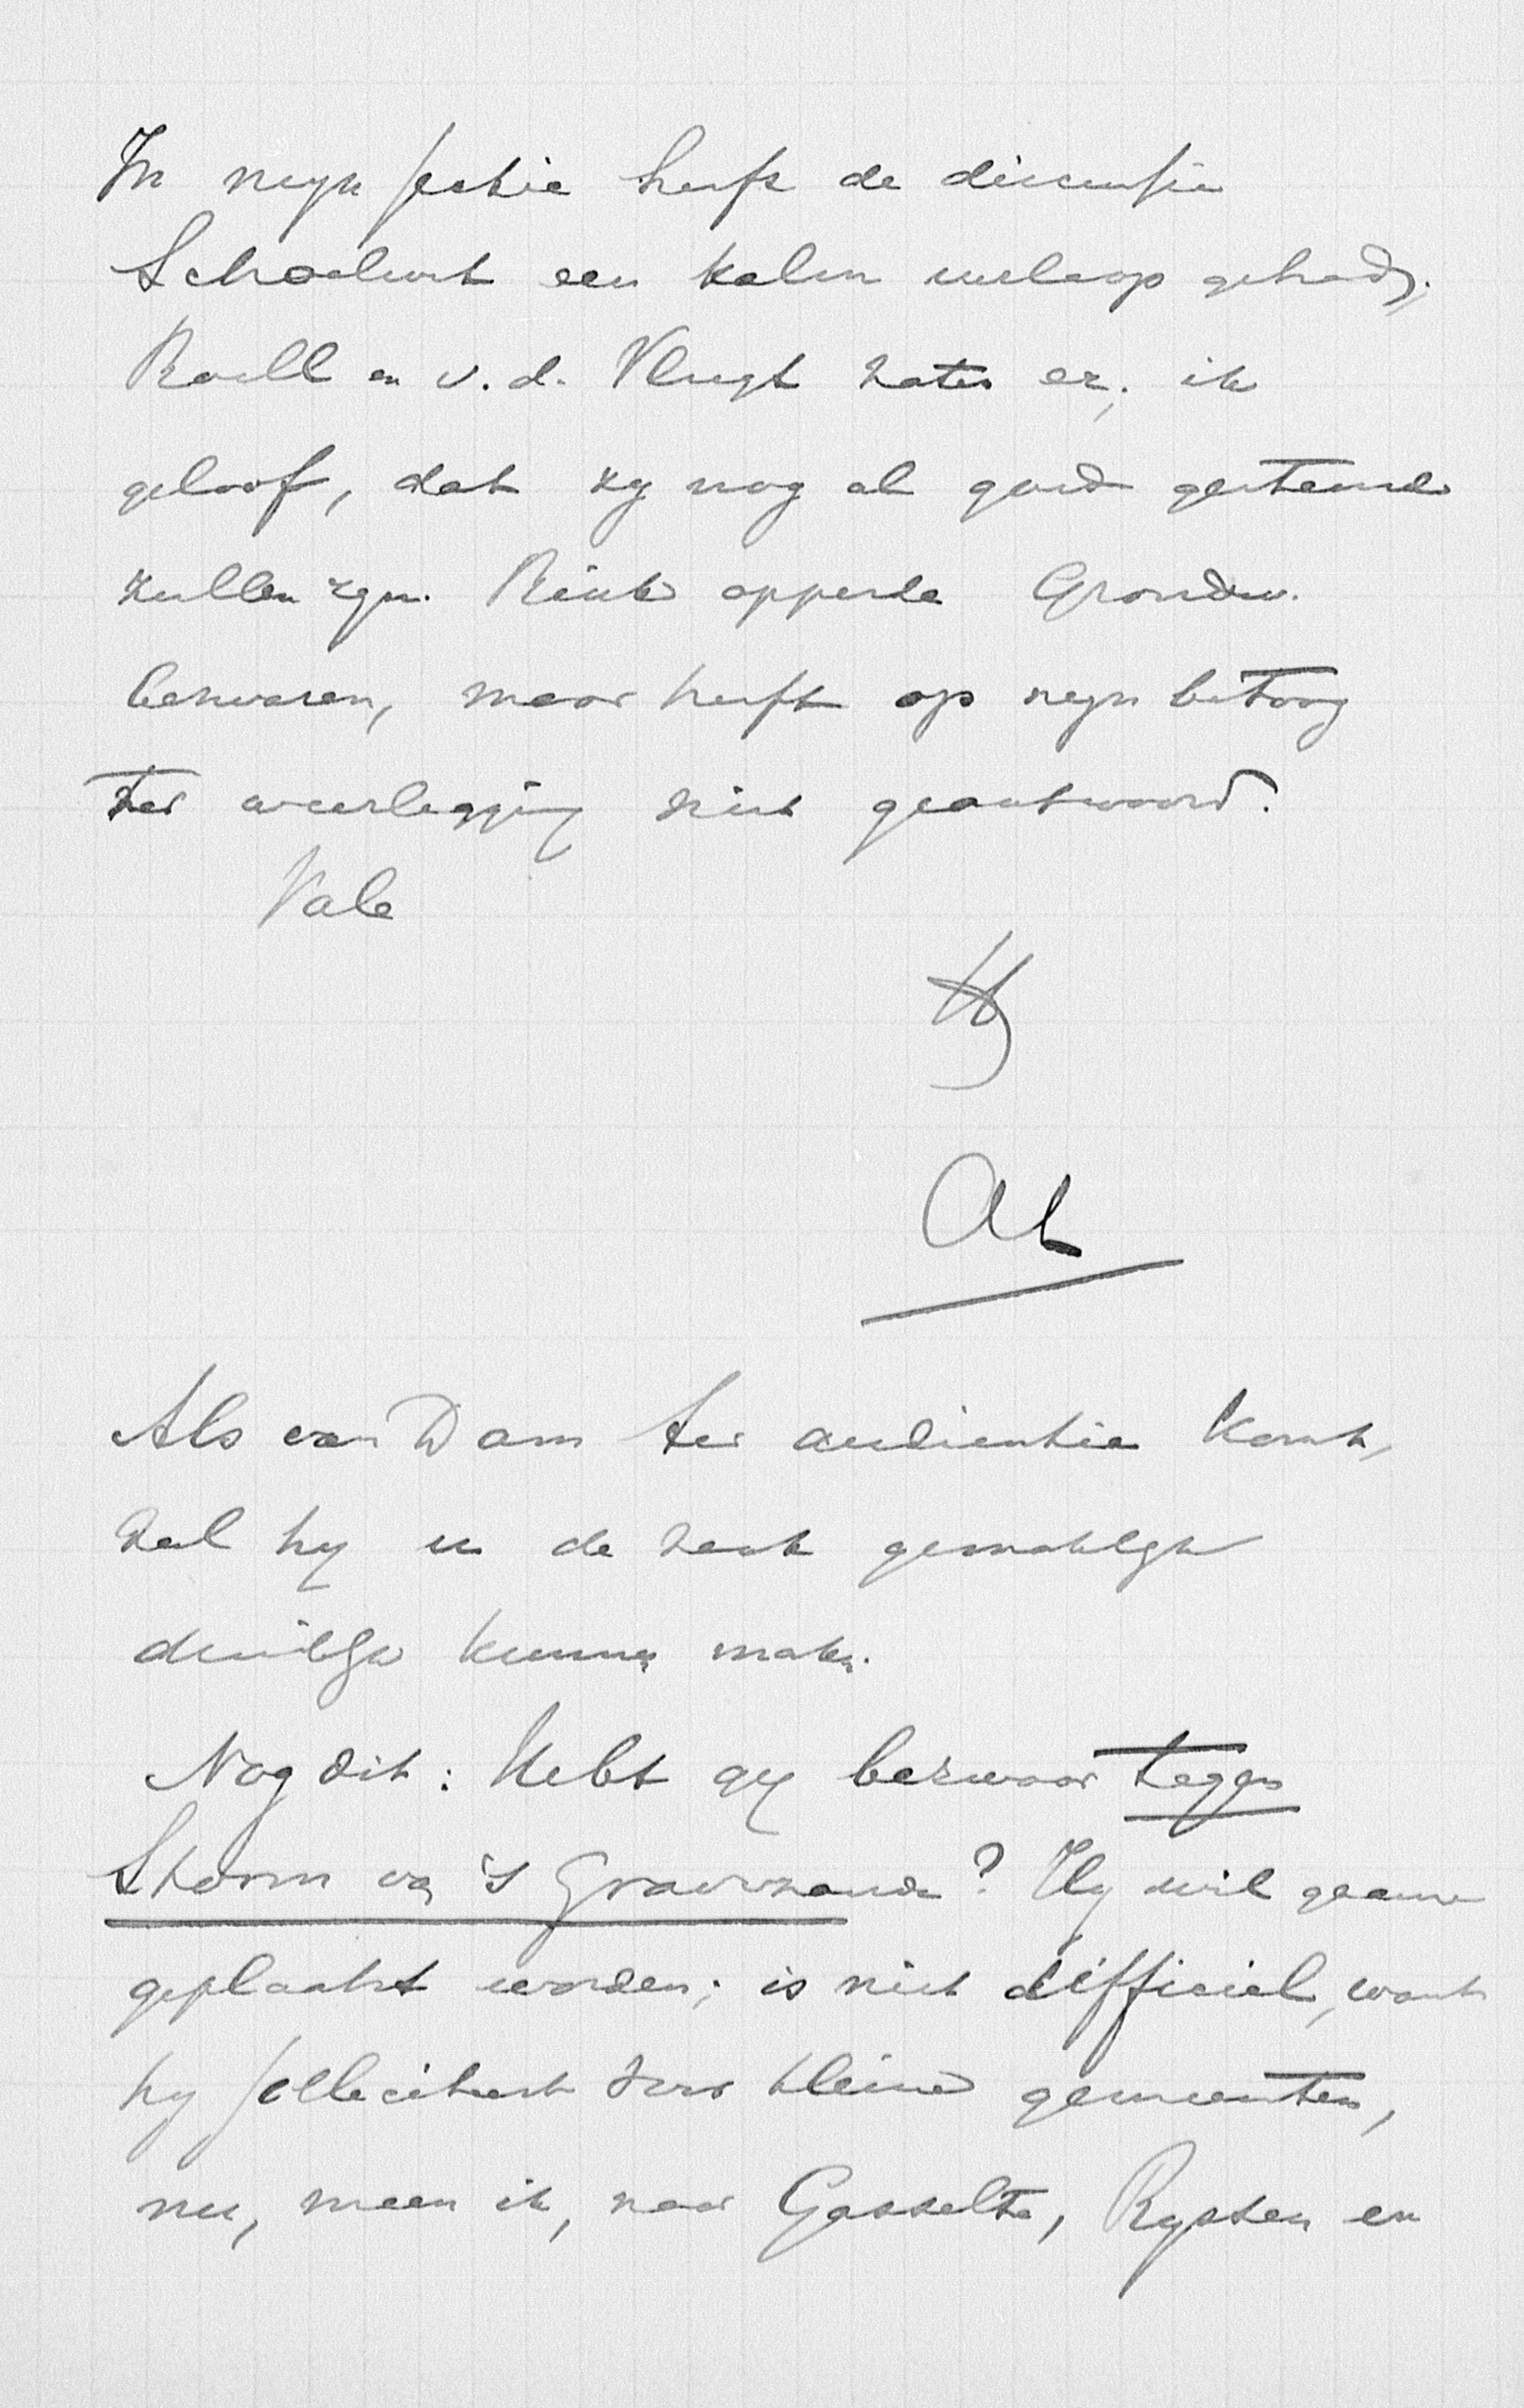 In mijn sectie heeft de discussie
Schoolwet een kalm verloop gehad;
Roëll en v.d. Vlugt zaten er; ik
geloof, dat zij nog al goed gestemd
zullen zijn. Rink opperde Grondw.
bezwaren, maar heeft op mijn betoog
ter weerlegging niet geantwoord.
Vale
Als van Dam ter audientie komt,
zal hij u de zaak gemaklijk
duidlijk kunnen maken.
Nog dit: Hebt gij bezwaar tegen
Storm van 's Gravezande? Hij wil gaarne
geplaatst worden; is niet difficiel, want
hij solleciteert voor kleine gemeenten,
nu, meen ik, naar Gasselte, Ryssen en